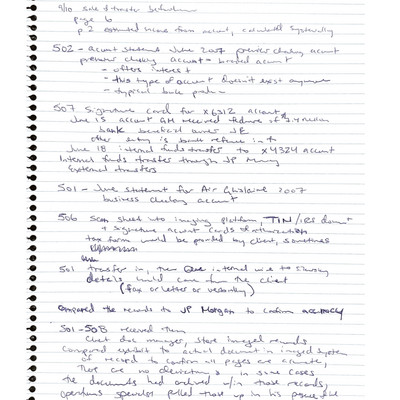 9/10 Sale & transfer
page 6
p 2 estimated income from account, calculated
502 - account statement June 2007 premier checking account
premier checking account = branded account
- offers interest
- this type of account doesn't exist anymore
- typical bank product
507 Signature card for x6312 account
June 15 account GM received
bank beneficial owner JE
other entity is
June 18 internal funds transfer to x4324 account
Internal funds transfer through JP
External transfers
501 - June statement for Air Ghislaine 2007
business checking account
506 Scan sheet into imaging platform, TIN/IRS document
+ signature account cards of authorization
tax form would be provided by client, sometimes
501 transfer in, then internal wire to
details would come from the client
(fax or letter or verbally)
Compared the records to JP Morgan to confirm accuracy
501-508 received them
Client doc manager, store imaged records
Compared exhibit to actual document in imaged system
of record to confirm all pages are accurate,
There are no in some cases
the documents had w/in those records,
operations pulled those up in his